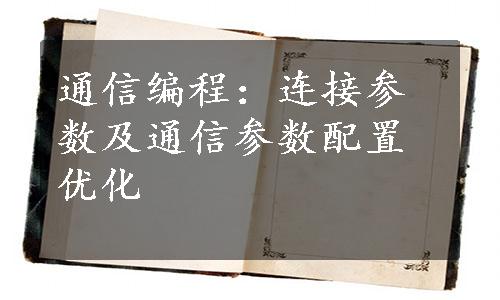 通信编程：连接参
数及通信参数配置
优化